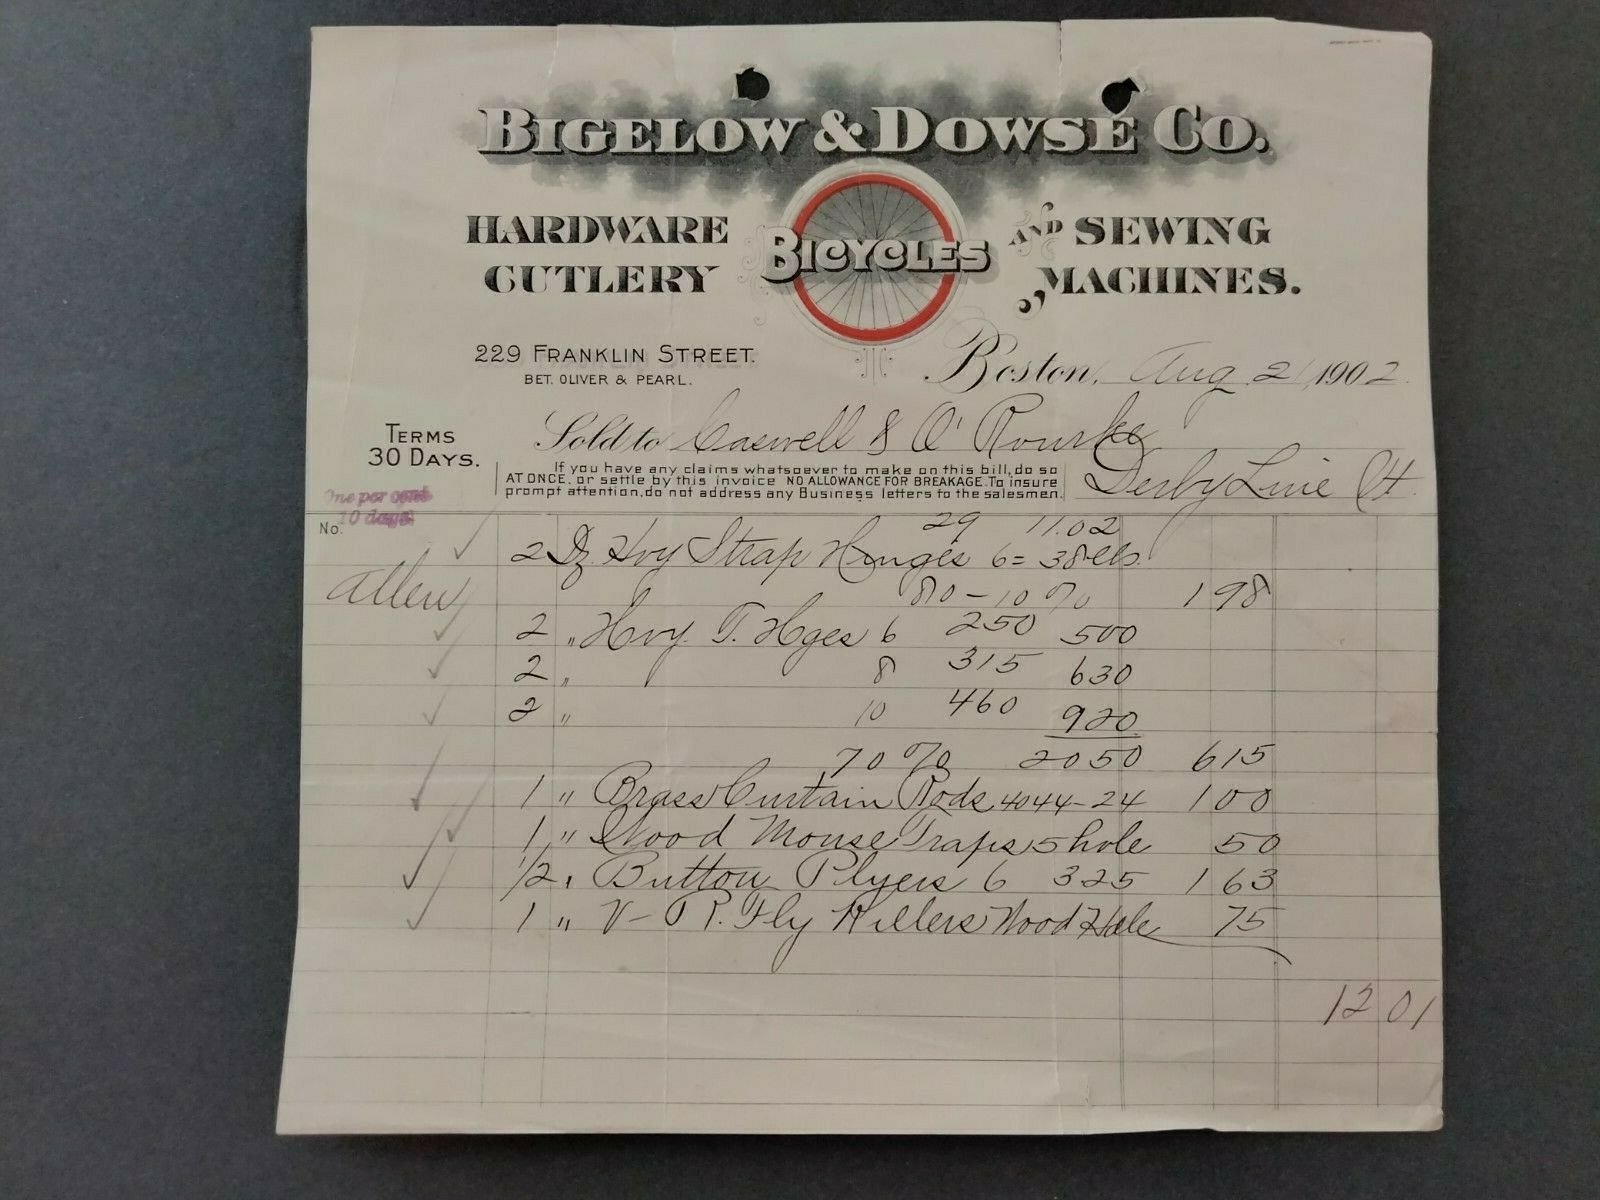 BIGELOW & DOWSE CO.
HARDWARE BICYCLES AND SEWING
CUTLERY MACHINES.
229 FRANKLIN STREET.
BET. OLIVER & PEARL.
Boston, Aug 21, 1902.
TERMS
30 DAYS.
Sold to Caswell & O'Rourke
Derby Line Vt
If you have any claims whatsoever to make on this bill, do so
AT ONCE, or settle by this invoice NO ALLOWANCE FOR BREAKAGE. To insure
prompt attention, do not address any Business letters to the salesmen.
One per cent
10 days.
No.
29 11.02
2 Dz. Hvy Strap Hinges 6 = 38 lbs.
Allen 80-10% 198
2 " Hvy. T. Hges 6 250 500
2 " 8 315 630
2 " 10 460 920
70% 2050 615
1 " Brass Curtain Rods 4044-24 100
1 " Wood Mouse Traps 5 hole 50
1/2 " Button Plyers 6 325 163
1 " Fly Killers Wood 75
12 01